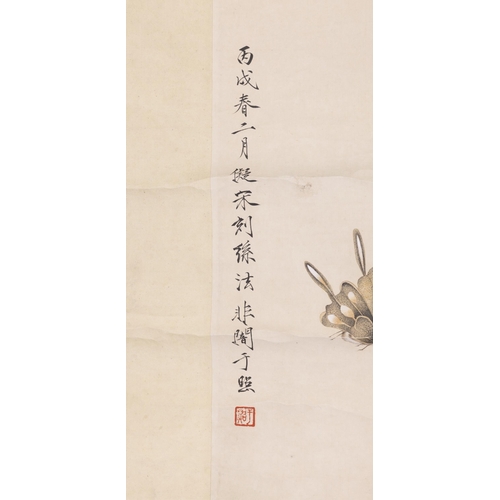 丙戌春二月儗宋刻絲法非闇于照